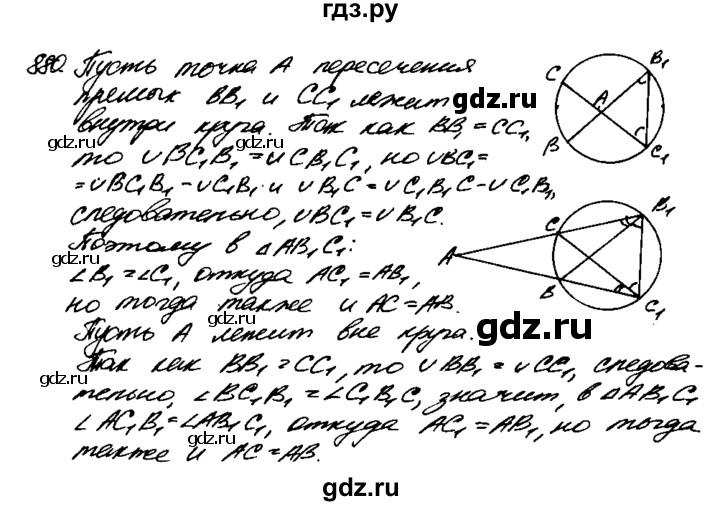 гдз.ру
880. Пусть точка А пересечения
прямых BB₁ и CC₁ лежит
внутри круга. Так как BB₁ = CC₁,
то ∪BC₁B₁ = ∪CB₁C₁, но ∪BC₁=
=∪BC₁B₁-∪C₁B₁ и ∪B₁C=∪C₁B₁C-∪C₁B₁,
следовательно, ∪BC₁=∪B₁C.
Поэтому в △AB₁C₁:
∠B₁=∠C₁, откуда AC₁=AB₁,
но тогда также и AC=AB.
Пусть А лежит вне круга.
Так как BB₁=CC₁, то ∪BB₁=∪CC₁, следова-
тельно, ∠BC₁B₁=∠C₁B₁C, значит, в △AB₁C₁
∠AC₁B₁=∠AB₁C₁, откуда AC₁=AB₁, но тогда
также и AC=AB.
C
B₁
A
B
C₁
B₁
C
A
B
C₁
gdz.ru
gdz.ru
gdz.ru
gdz.ru
gdz.ru
gdz.ru
gdz.ru
gdz.ru
gdz.ru
gdz.ru